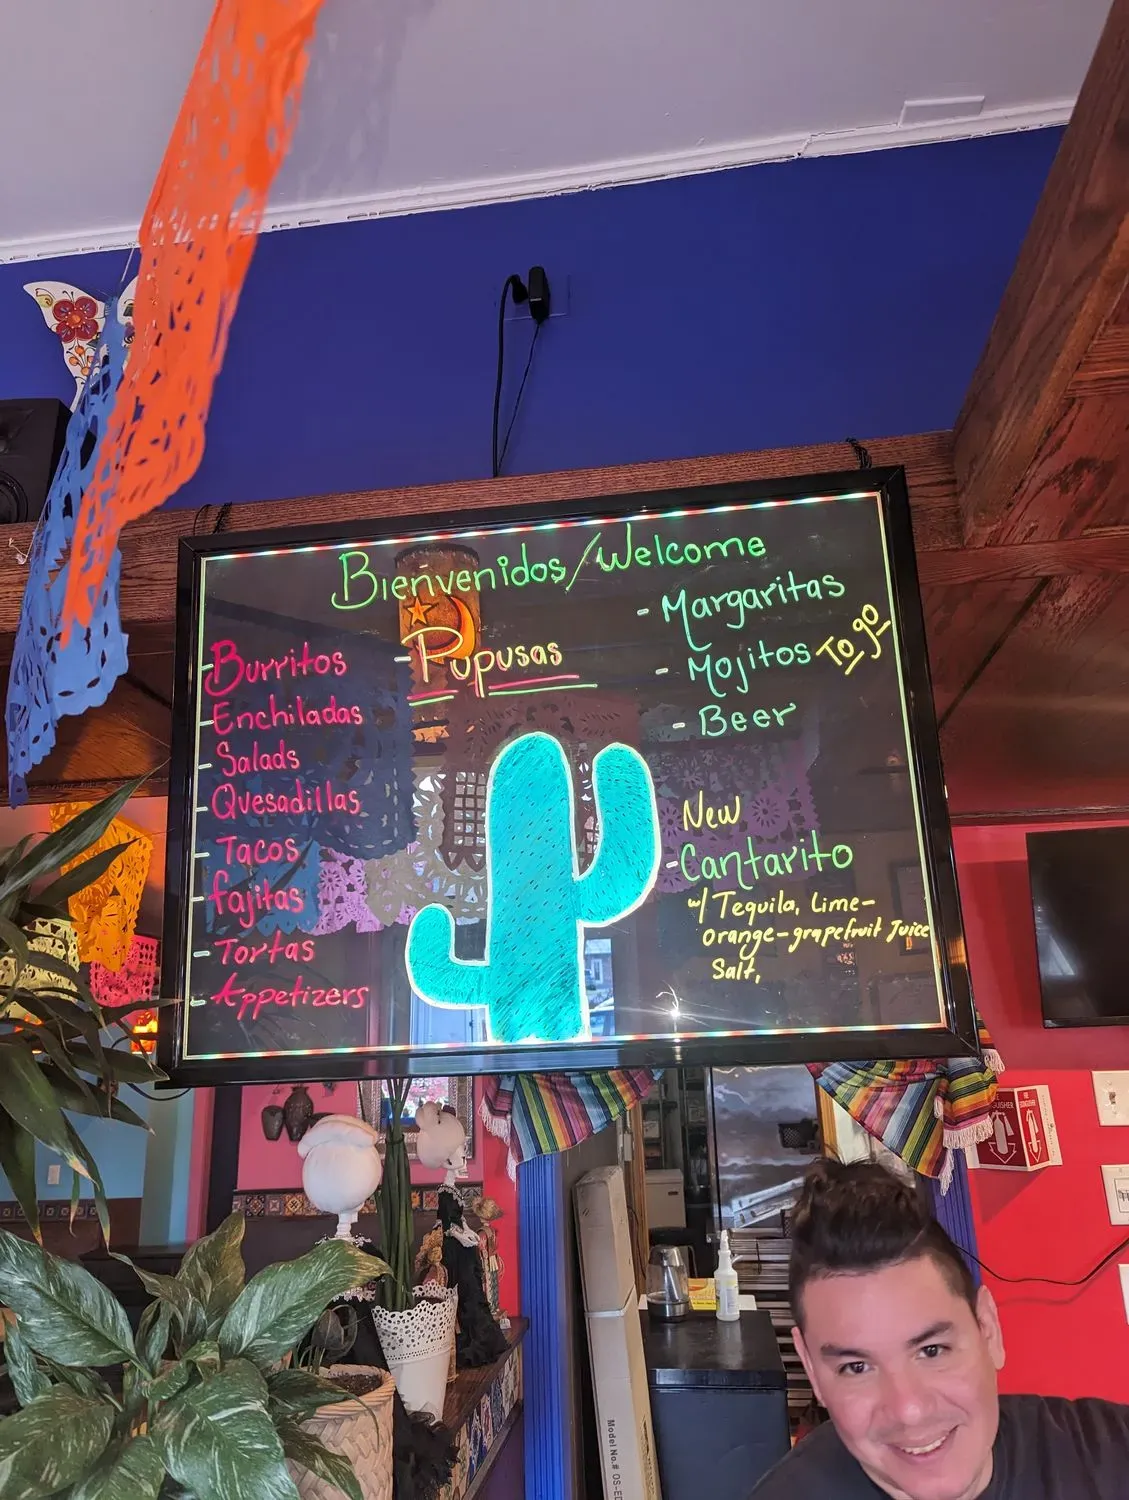 Bienvenidos/Welcome
- Burritos
- Enchiladas
- Salads
- Quesadillas
- Tacos
- fajitas
- Tortas
- Appetizers
- Pupusas
- Margaritas
- Mojitos
To go
- Beer
New
- Cantarito
w/ Tequila, Lime-
orange-grapefruit Juice
Salt,
FIRE
EXTINGUISHER
Model No.# OS-E